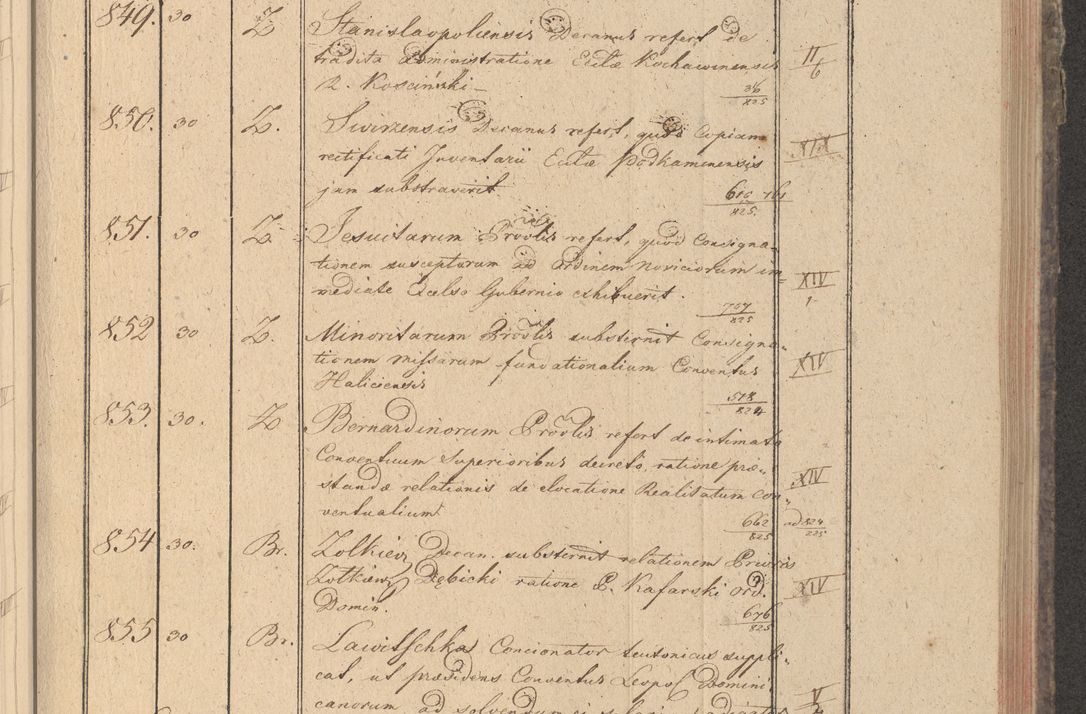 849. 30 Z Stanislaopoliensis Decanus refert de
tradita administratione Ecclæ Kochawinensis II/6
R. Kosciński 36/825
850. 30 Z. Swirzensis Decanus refert, quod Copiam
rectificati Inventarii Ecclæ Podkamenensis XIX
jam substraverit 616 761/825
851. 30 Z. Jesuitarum Provlis refert, quod Consigna-
tionem susceptorum ad Ordinem Noviciorum im=
mediate Excelso Gubernio exhibuerit. XIV/1
757/825
852 30 Z. Minoritarum Provlis substernit Consigna-
tionem missarum fundationalium Conventus XIV
Haliciensis 518/824
853. 30. Z Bernardinorum Provlis refert de intimato
Conventuum Superioribus decreto, ratione præ-
standæ relationis de elocatione Realitatum Con- XIV
ventualium 662/825 ad 824/225
854 30. Br. Zolkiev Decan. substernit relationem Prioris
Zolkiew Dębicki ratione P. Kafarski Ord. XIV
Domin. 676/825
855 30 Br. Lawitschka Concionator teutonicus suppli-
cat, ut præsidens Conventus Leopol Domini-
canorum ad solvendum ei V/2